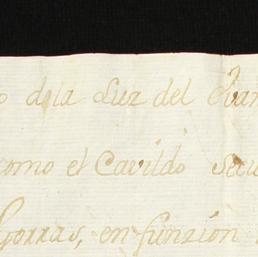 dela Luz del Evan
como el Cavildo Secu
Gorras, en funzion